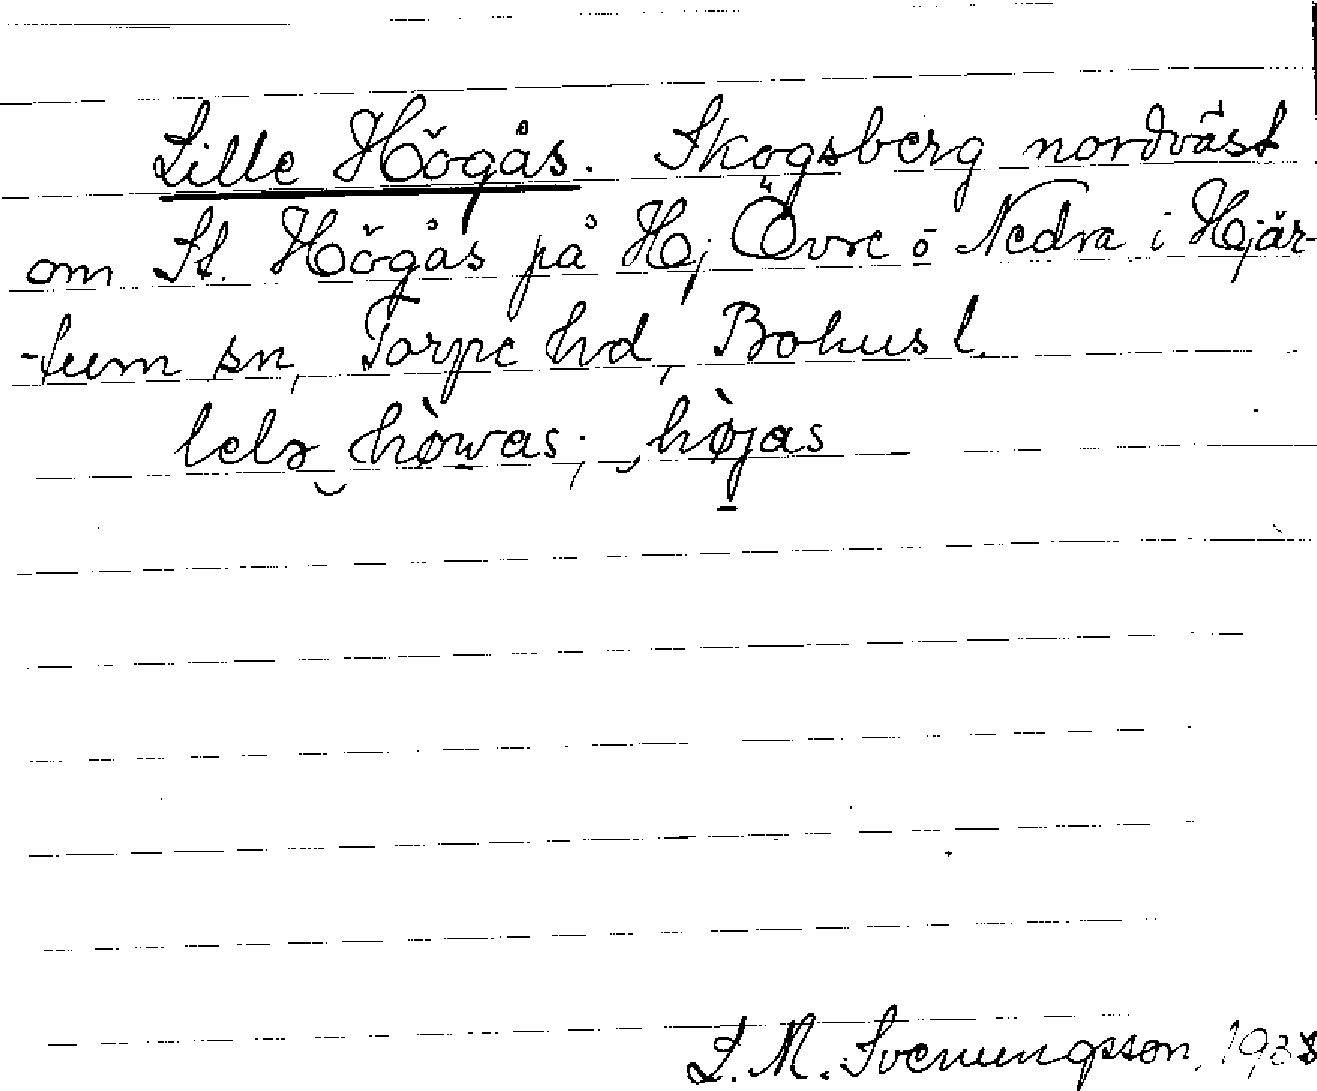 Lille Högås. Skogsberg nordväst
om St. Högås på Hj Övre o Nedra i Hjär-
tum sn, Torpe hd, Bohusl.
höwas; höjas
L. M. Svenungsson,